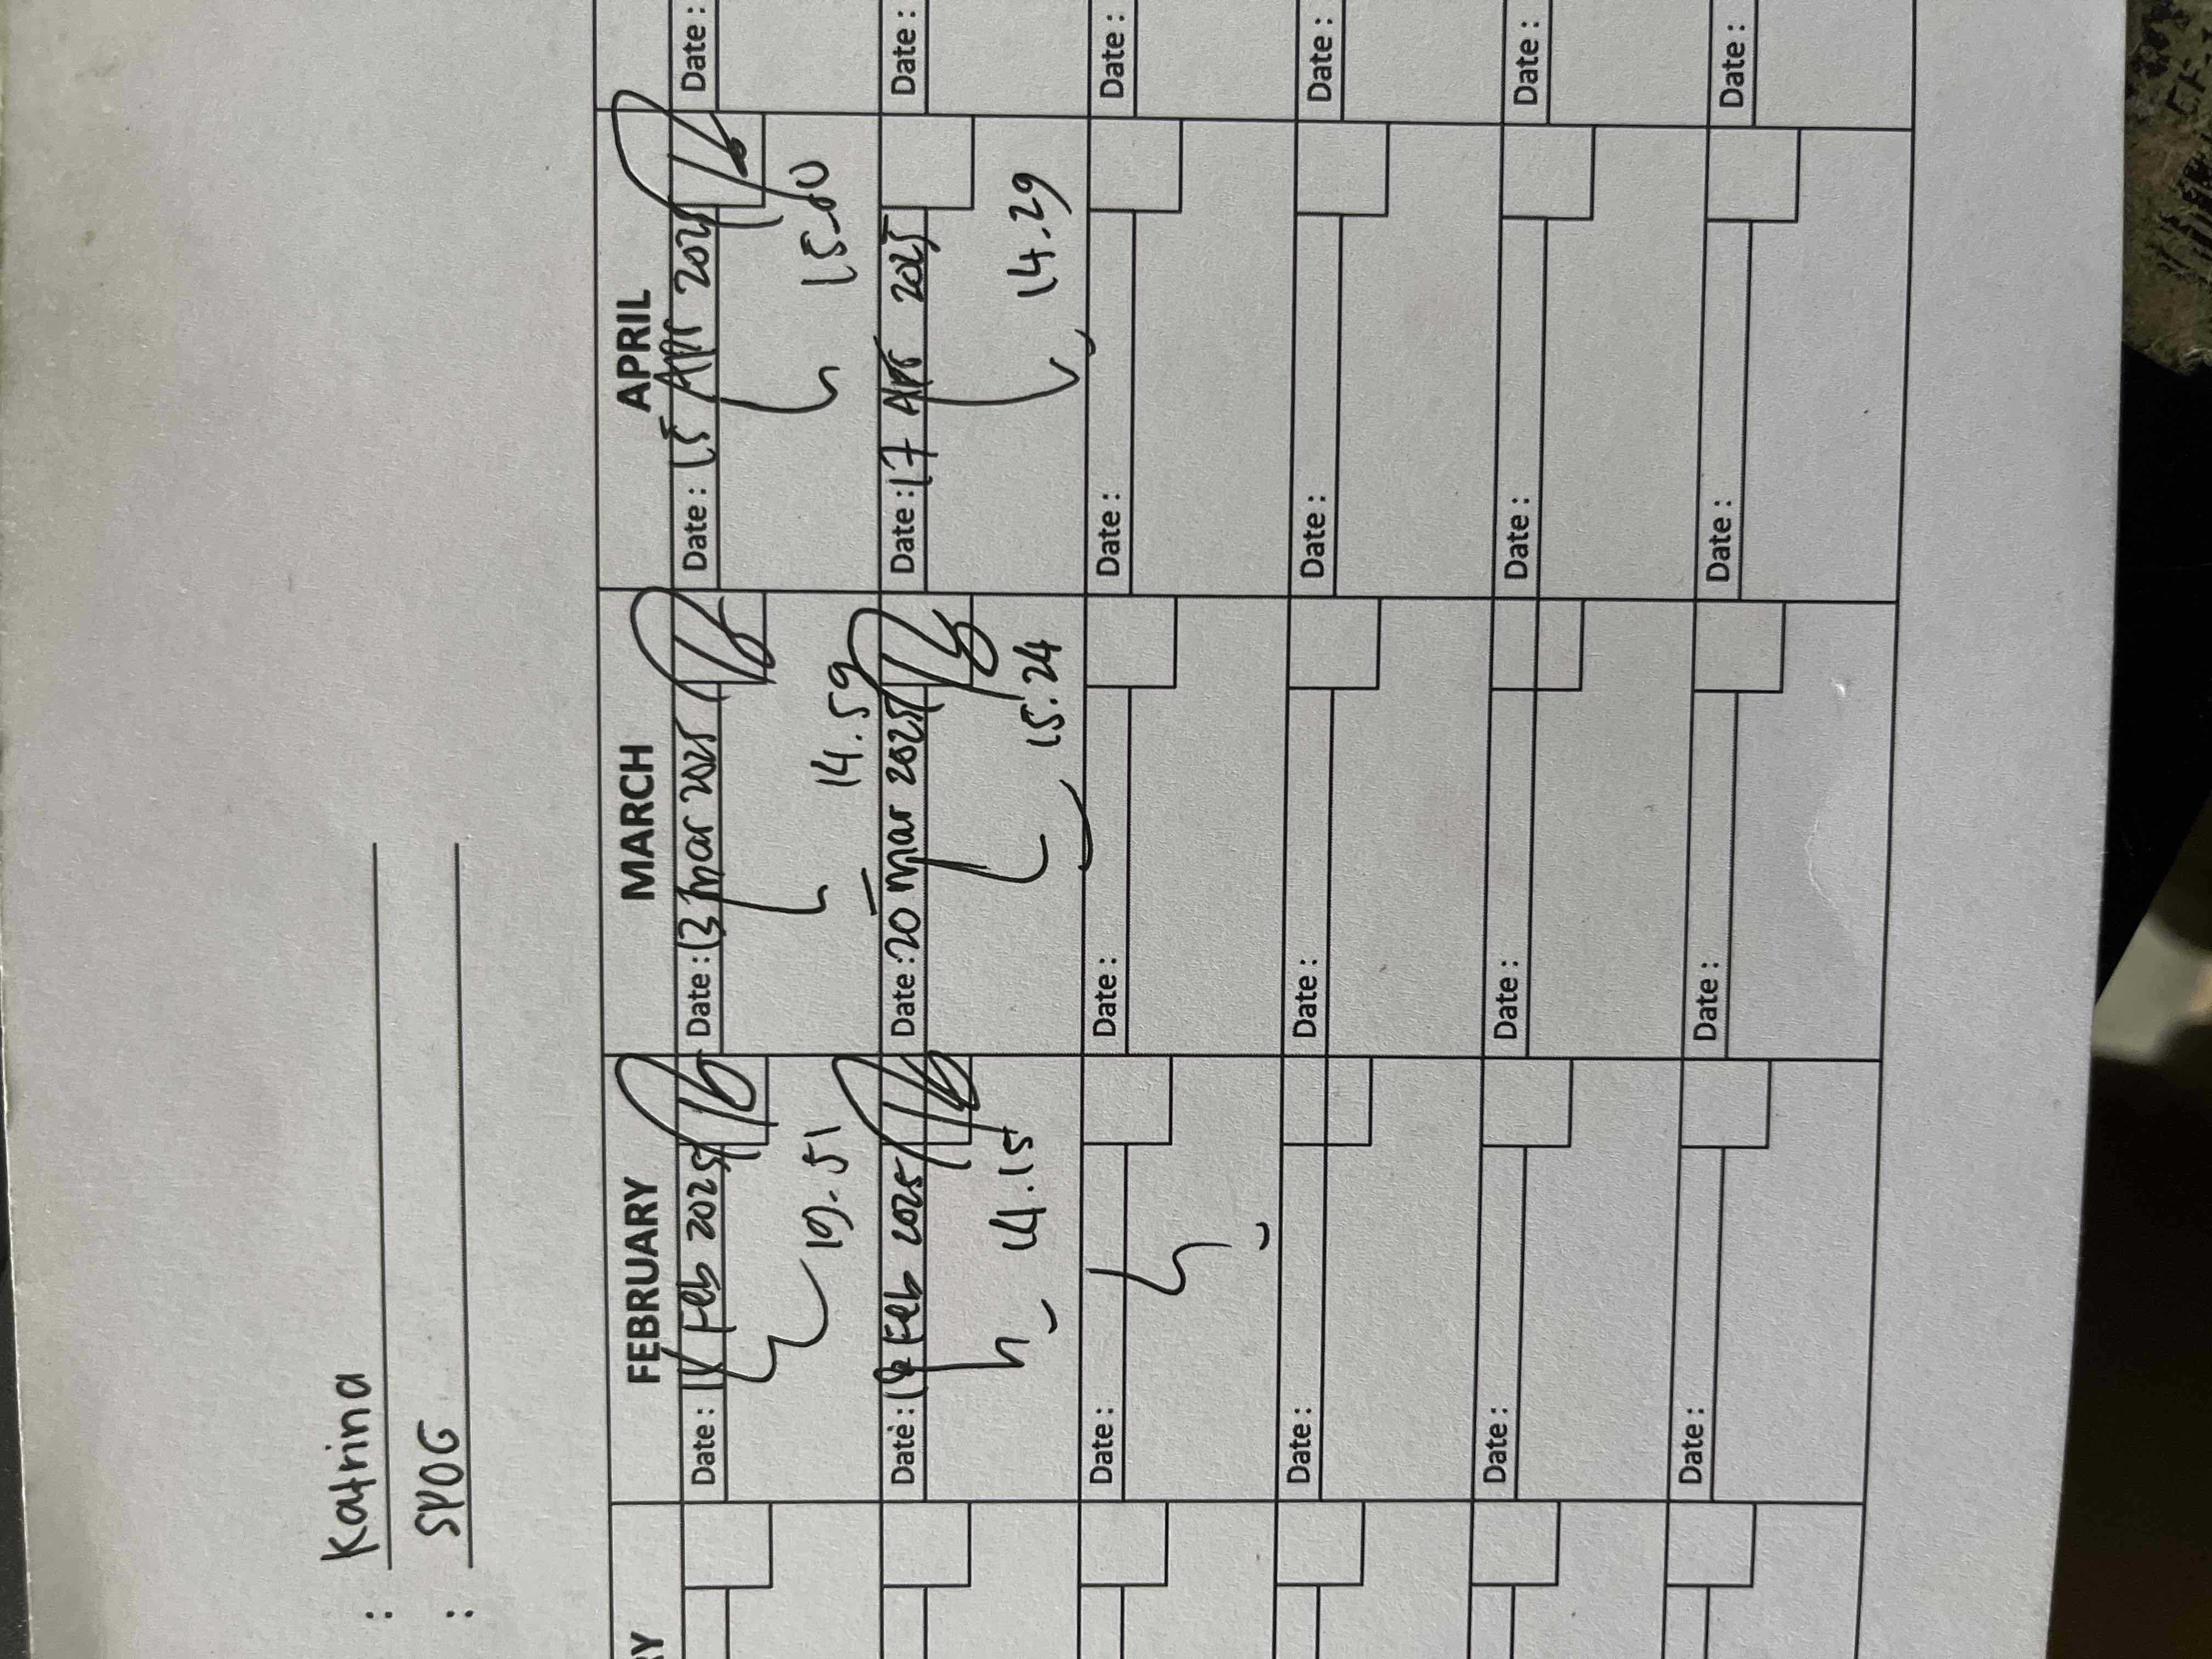 : Katrina
: SPOG
RY FEBRUARY MARCH APRIL
Date : Feb 2025 Date : 13 Mar 2025 Date : 15 Apr 2025 Date :
19.51 14.59 15.00
Date : 18 Feb 2025 Date : 20 Mar 2025 Date : 17 Apr 2025 Date :
14.15 15.24 14.29
Date : Date : Date : Date :
Date : Date : Date : Date :
Date : Date : Date : Date :
Date : Date : Date : Date :